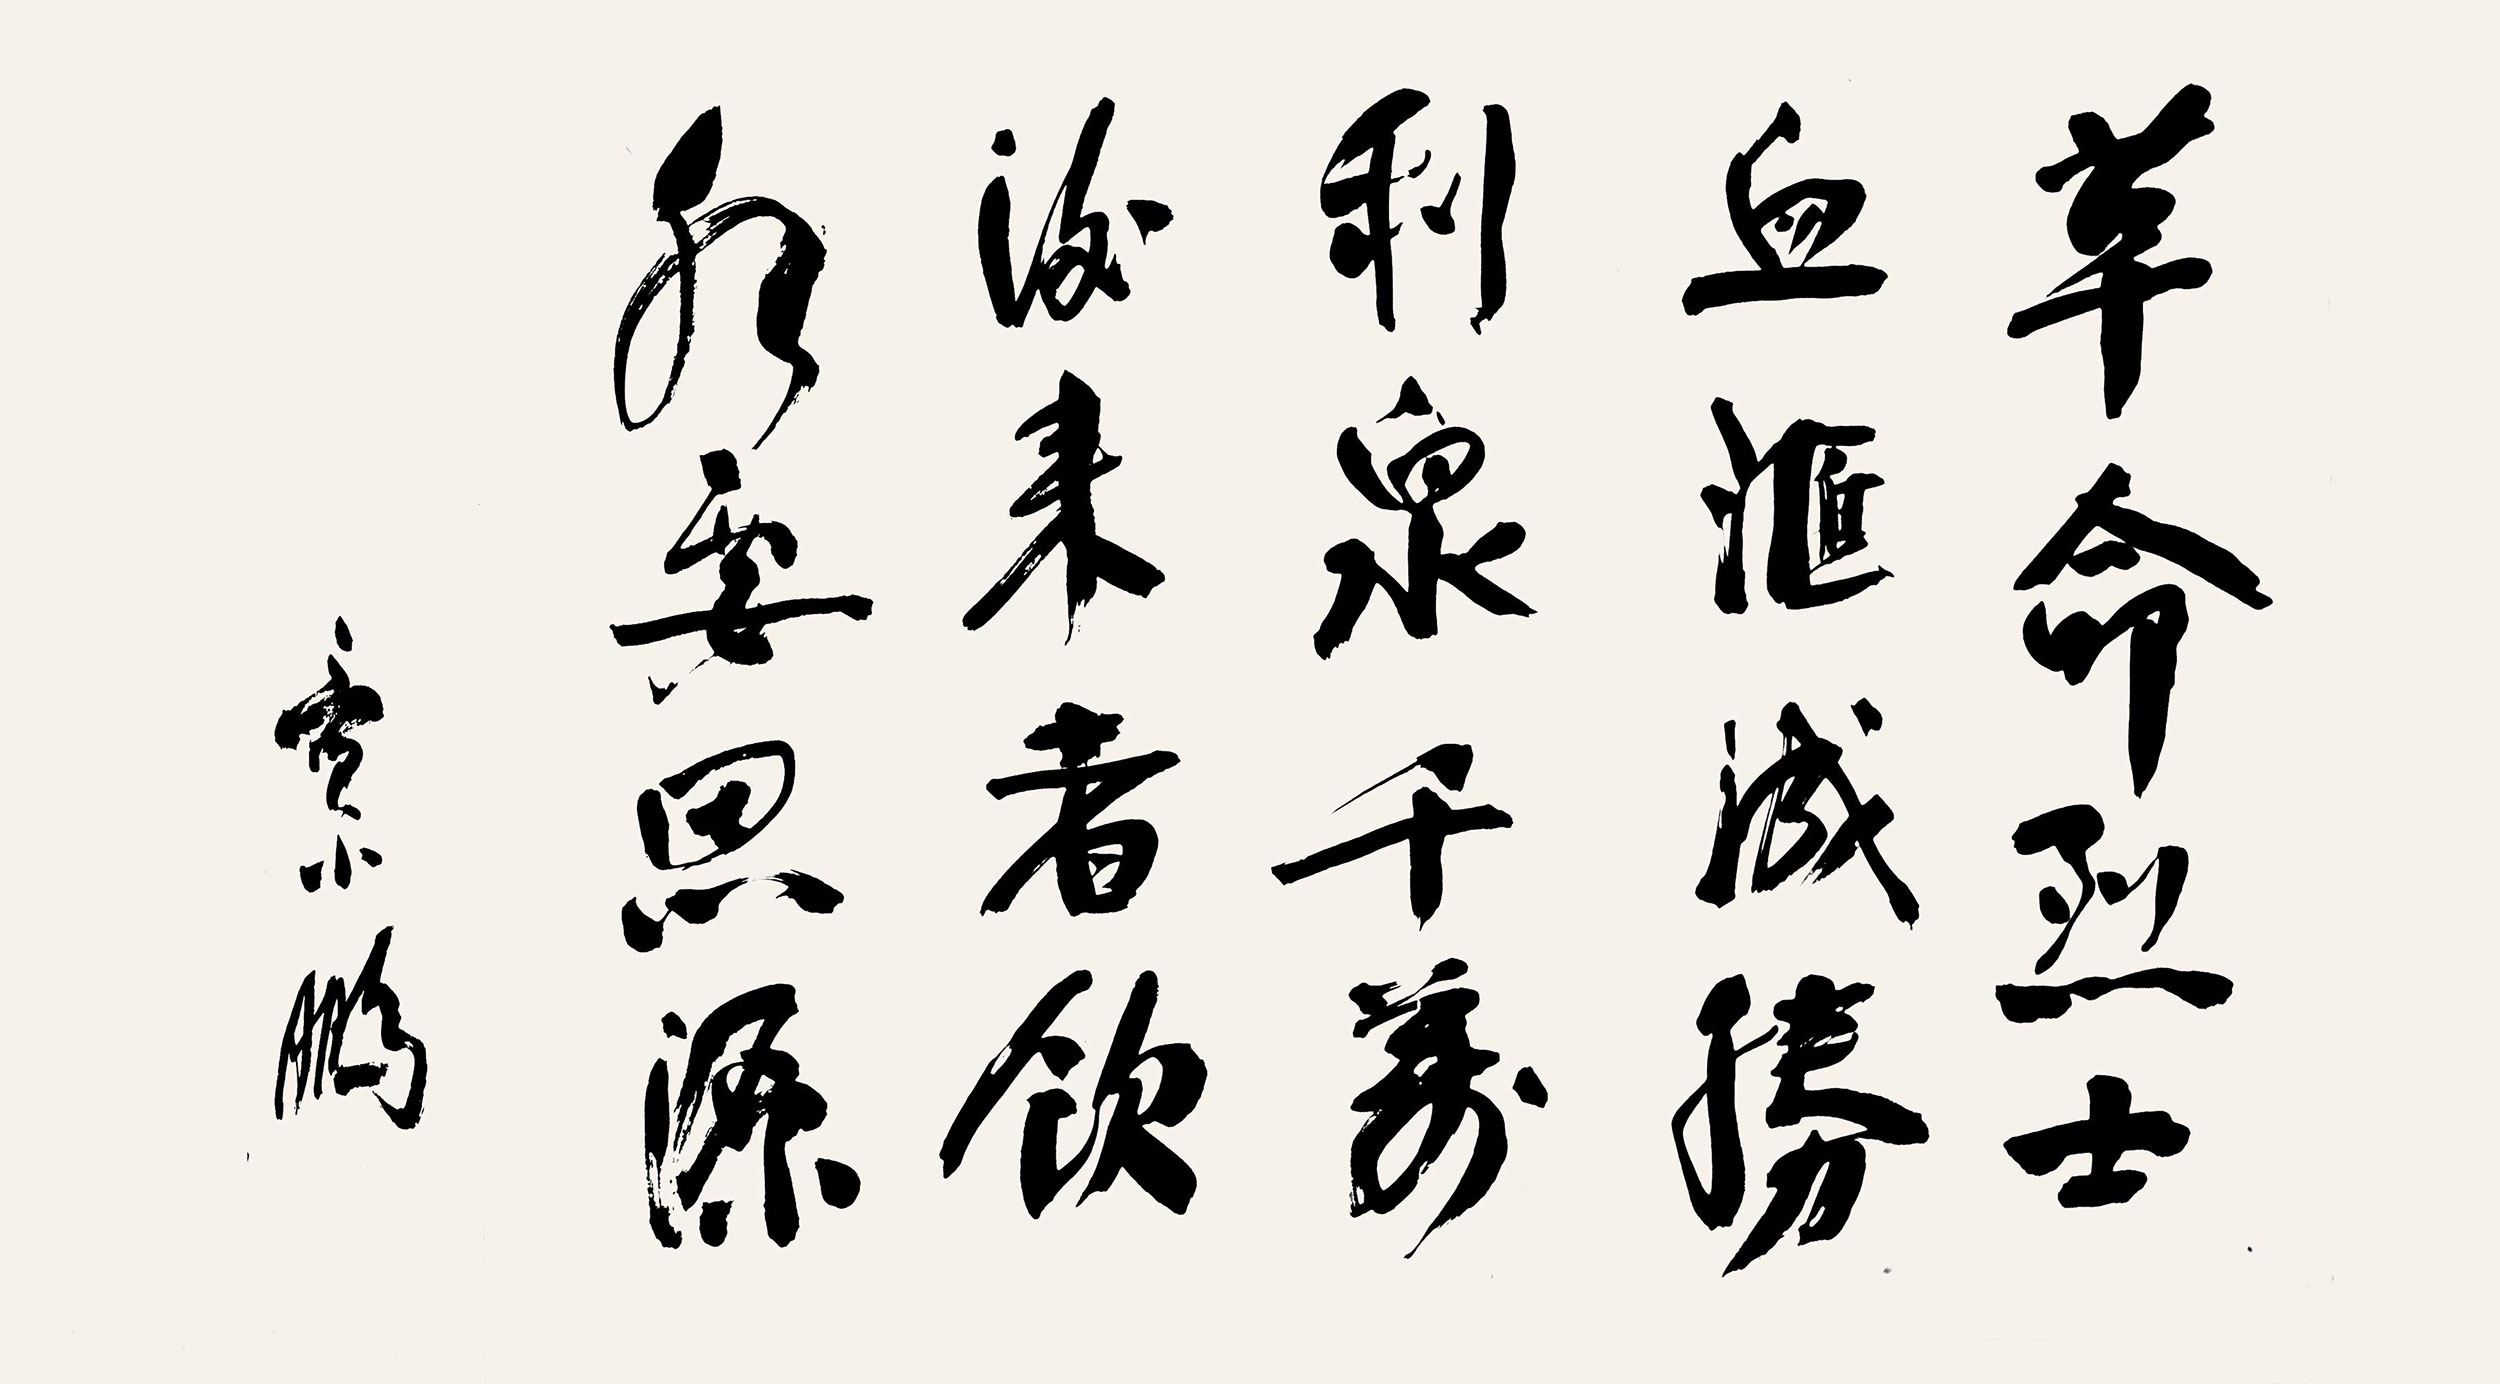 革命烈士
血滙成勝
利泉千萬
後来者飲
水要思源
小鵬